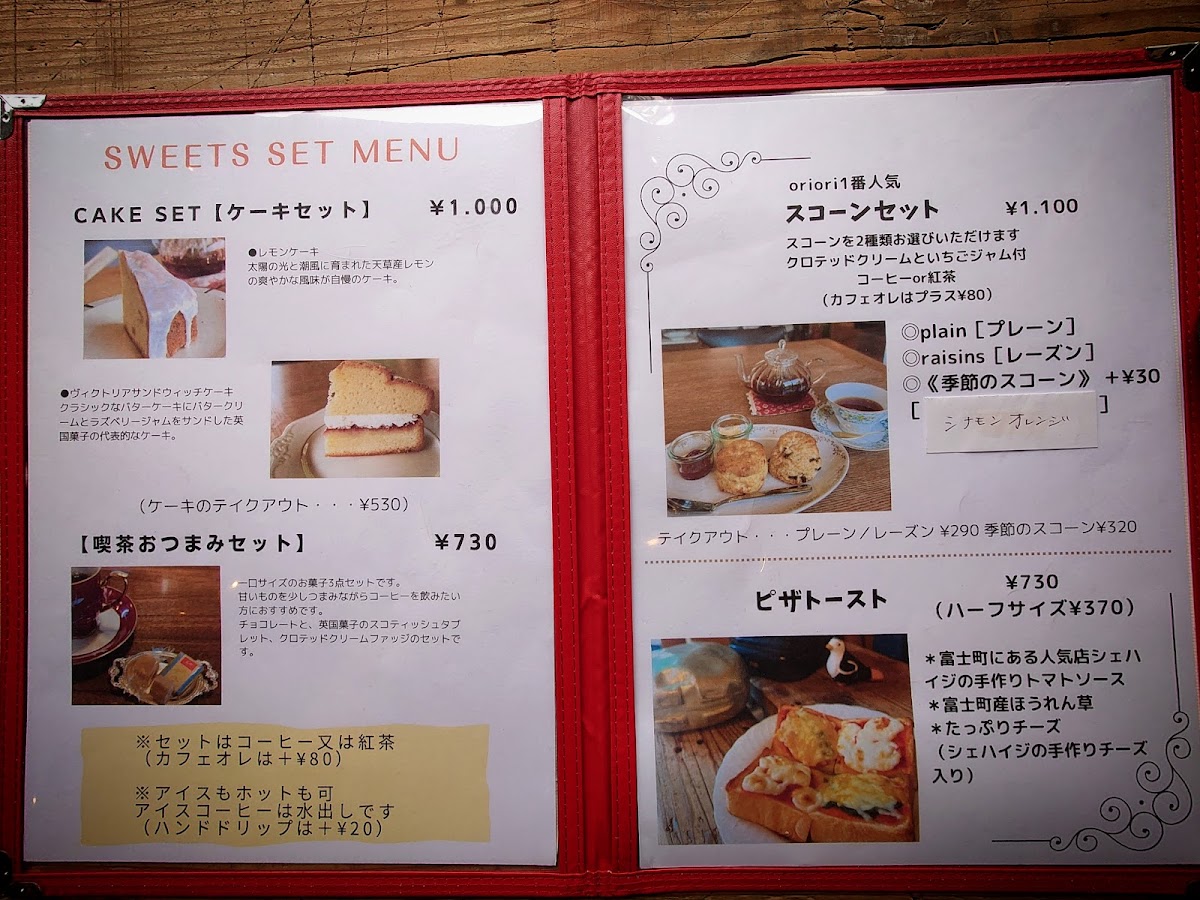 SWEETS SET MENU
CAKE SET【ケーキセット】 ¥1.000
●レモンケーキ
太陽の光と潮風に育まれた天草産レモン
の爽やかな風味が自慢のケーキ。
●ヴィクトリアサンドウィッチケーキ
クラシックなバターケーキにバタークリ
ームとラズベリージャムをサンドした英
国菓子の代表的なケーキ。
（ケーキのテイクアウト・・・¥530）
【喫茶おつまみセット】 ¥730
一口サイズのお菓子3点セットです。
甘いものを少しつまみながらコーヒーを飲みたい
方におすすめです。
チョコレートと、英国菓子のスコティッシュタブ
レット、クロテッドクリームファッジのセットで
す。
※セットはコーヒー又は紅茶
（カフェオレは＋¥80）
※アイスもホットも可
アイスコーヒーは水出しです
（ハンドドリップは＋¥20）
oriori1番人気
スコーンセット ¥1.100
スコーンを2種類お選びいただけます
クロテッドクリームといちごジャム付
コーヒーor紅茶
（カフェオレはプラス¥80）
◎plain［プレーン］
◎raisins［レーズン］
◎《季節のスコーン》 ＋¥30
［シナモンオレンジ］
テイクアウト・・・プレーン／レーズン ¥290 季節のスコーン¥320
ピザトースト ¥730
（ハーフサイズ¥370）
＊富士町にある人気店シェハ
イジの手作りトマトソース
＊富士町産ほうれん草
＊たっぷりチーズ
（シェハイジの手作りチーズ
入り）